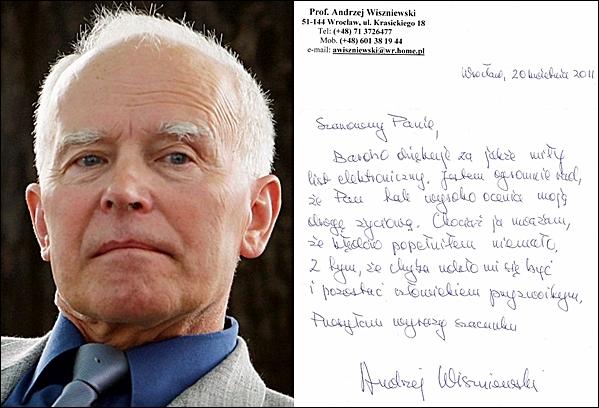 Prof. Andrzej Wiszniewski
51-144 Wrocław, ul. Krasickiego 18
Tel: (+48) 71 3726477
Mob. (+48) 601 38 19 44
e-mail: awiszniewski@wr.home.pl
Wrocław, 20 kwietnia 2011
Szanowny Panie,
Bardzo dziękuję za jakże miły
list elektroniczny. Jestem ogromnie rad,
że Pan tak wysoko ocenia moją
drogę życiową. Chociaż ja uważam,
że błędów popełniłem niemało,
z tym, że chyba udało mi się być
i pozostać człowiekiem przyzwoitym.
Przesyłam wyrazy szacunku
Andrzej Wiszniewski